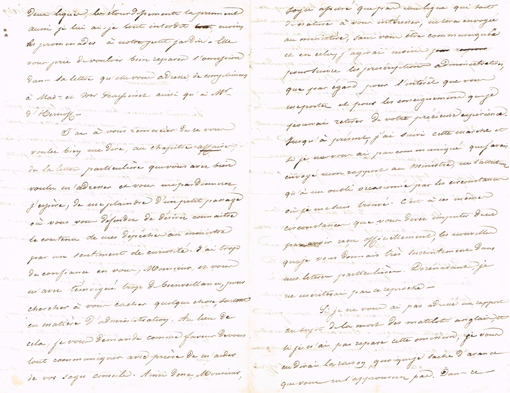 aussi je lui ai je tout
les promenades à notre petit jardin. Elle
vous prie de vouloir bien
dans la lettre qu'elle vous adresse de complimens
à Mad. et vos
J'ai à vous remercier de ce que vous
voulez bien me dire, au chapitre affaires
de la lettre particulière que vous avez bien
voulu m'adresser et vous me pardonnerez
j'espère, de me plaindre d'un petit passage
où vous vous défendez de désirer connaître
le contenu de mes dépêches au ministre
par un sentiment de curiosité. J'ai trop
de confiance en vous, Monsieur, et vous
m'avez témoigné trop de bienveillance, pour
chercher à vous cacher quelque chose surtout
en matière d'administration. Au lieu de
cela je vous demande comme faveur de vous
tout communiquer avec prière de m'aider
de vos sages conseils. Ainsi donc, Monsieur,
de nature à vous intéresser, ne sera envoyé
au ministre, sans vous être communiqué
et en cela j'agirai moins
pour suivre les prescriptions administratives
que par égard pour l'intérêt que vous
me portez et pour les enseignements que je
pourrai retirer de votre précieuse expérience.
Jusqu'à présent j'ai suivi cette marche et
si je ne vous ai pas communiqué
envoyé mon rapport au Ministre,
qu'à un oubli occasionné par les circonstances
où je me suis trouvé. C'est à ces mêmes
circonstances que vous devez imputer de ne
pas avoir reçu officiellement, les nouvelles
que je vous donnais très succinctement dans
ma lettre particulière. Dorénavant, je
ne mériterai pas ce reproche.
Si je ne vous ai pas adressé un rapport
au sujet de la mort des matelots anglais, et
si je n'ai pas réparé cette omission, je vous
en dirai la raison, quoique je sache d'avance
que vous ne l'approuverez pas. Dans ce